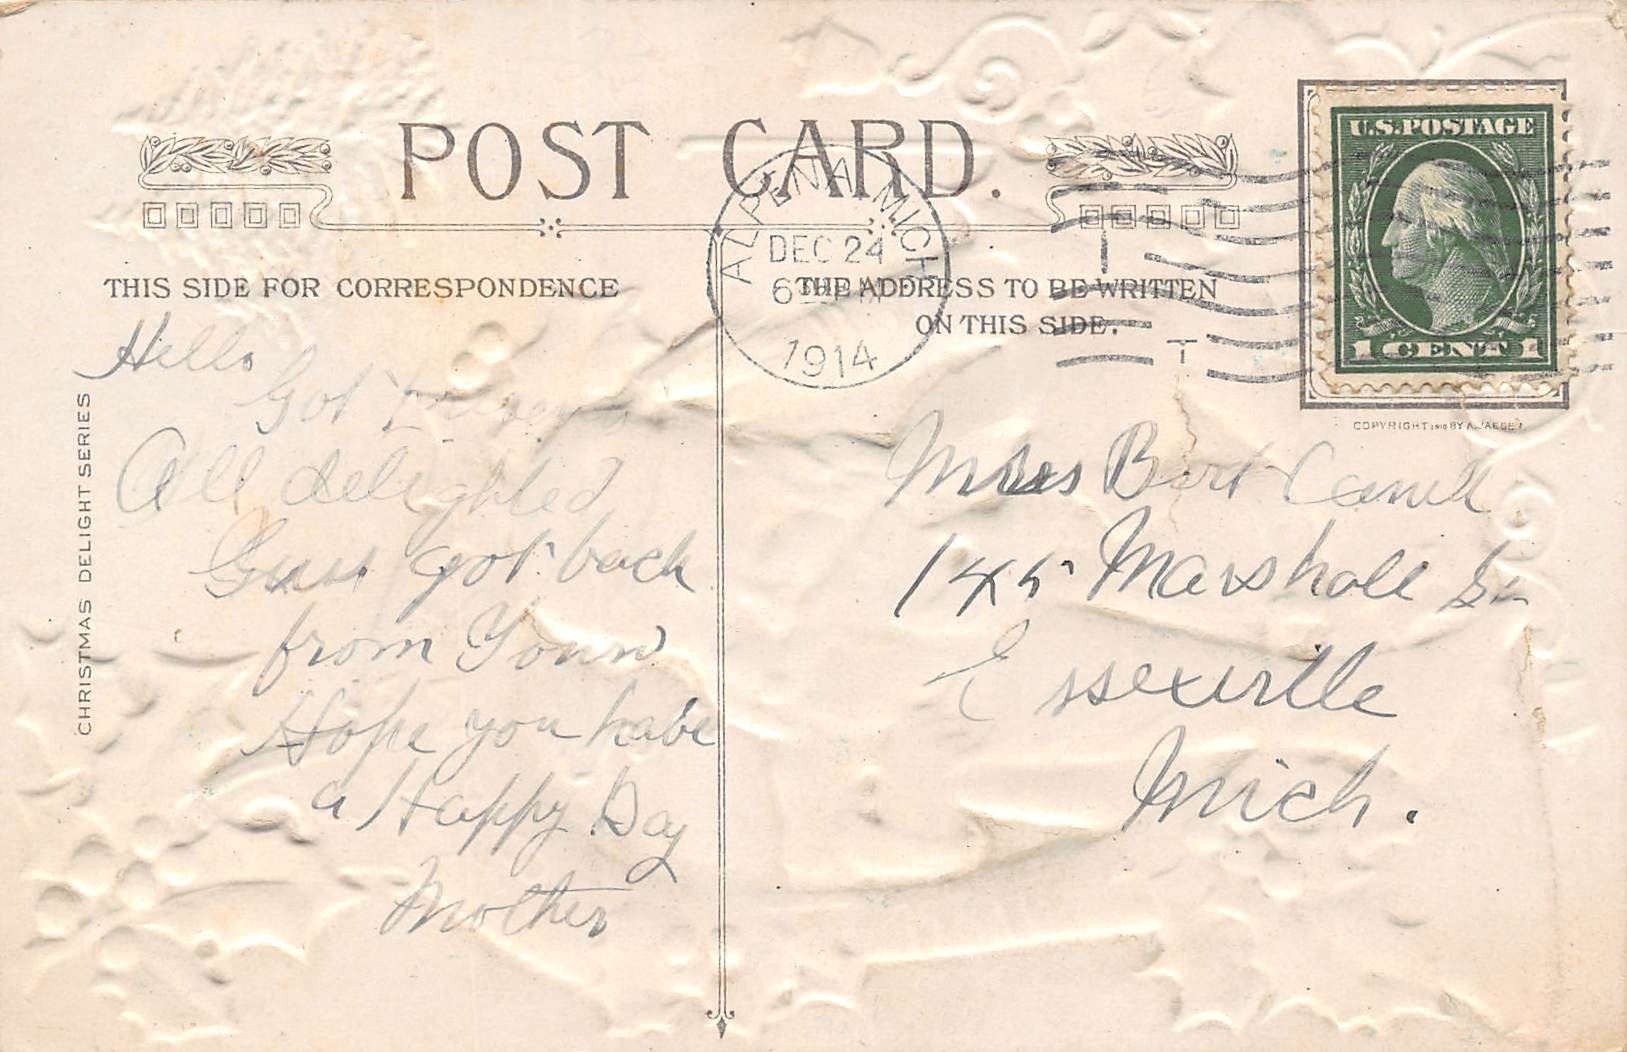 POST CARD.
THIS SIDE FOR CORRESPONDENCE
THE ADDRESS TO BE WRITTEN
ON THIS SIDE.
U.S. POSTAGE
1 CENT 1
ALPENA MICH
DEC 24
6
1914
COPYRIGHT 1910 BY A. JAEGER
CHRISTMAS DELIGHT SERIES
Hello
Got
All delighted
got back
from
Hope you have
a Happy Day
Mother
Bert
Marshall
Essexville
Mich.